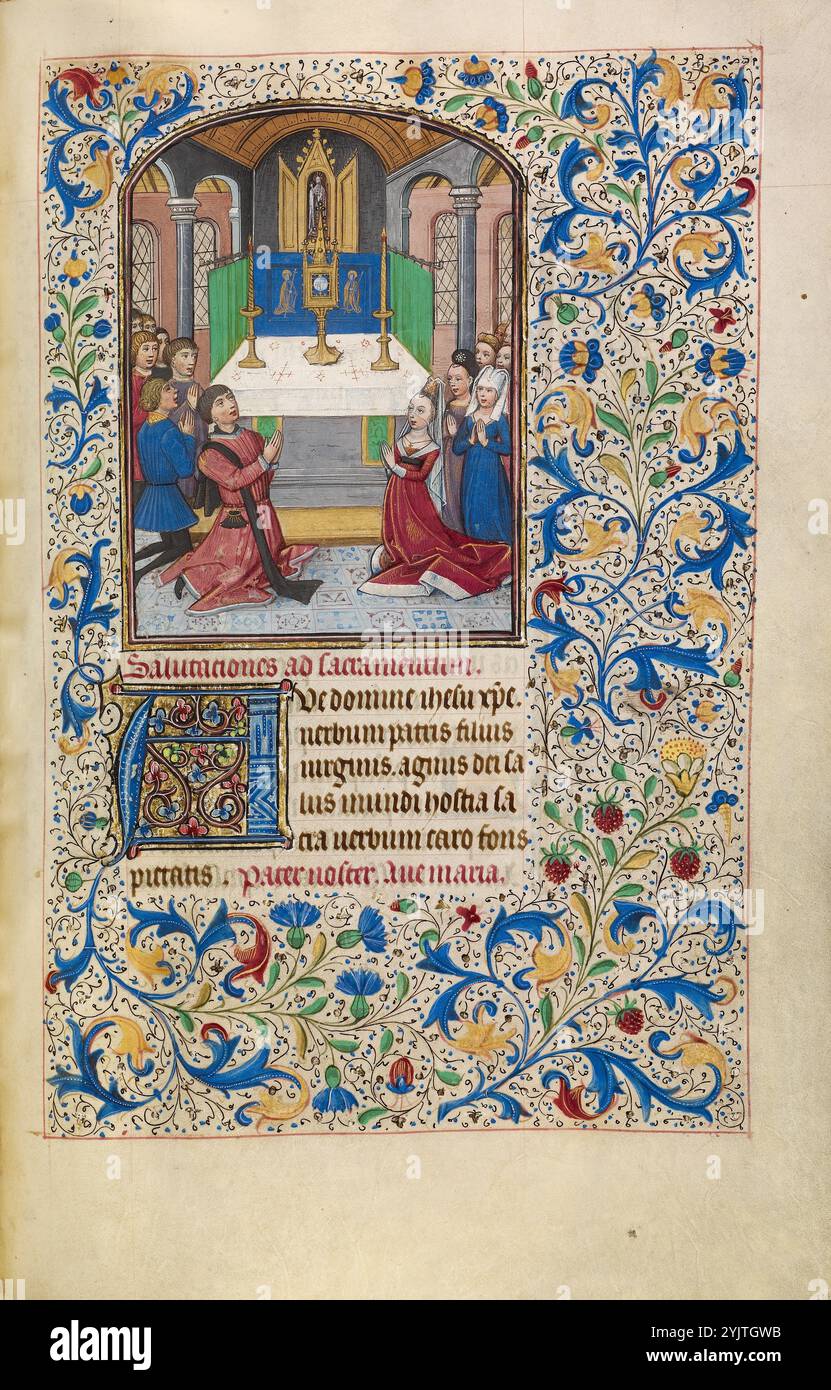 Salutaciones ad sacramentum.
Ave domine ihesu xp̄e.
uerbum patris filius
uirginis. agnus dei sa
lus mundi hostia sa
cra uerbum caro fons
pietatis Pater noster. Aue maria.
alamy
Image ID: 2YJTGWB
www.alamy.com